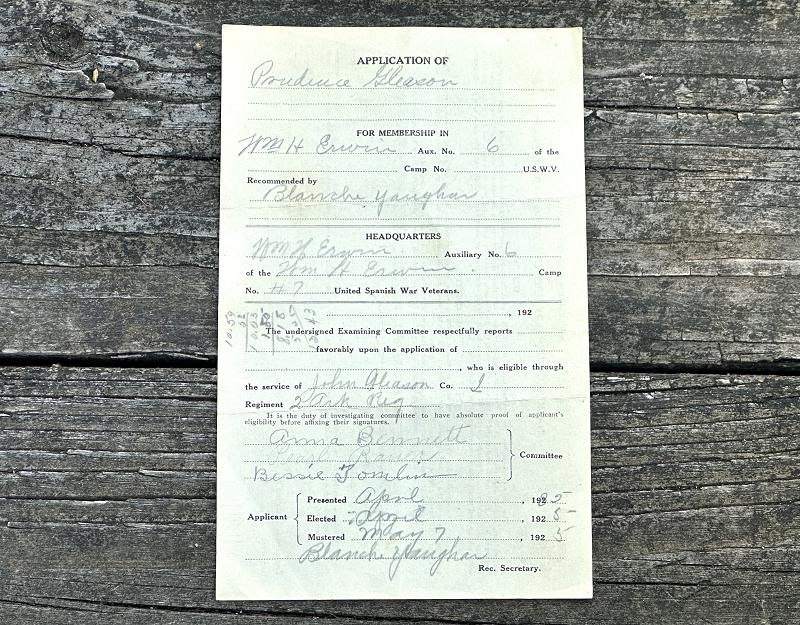 APPLICATION OF
Prudence Gleason
FOR MEMBERSHIP IN
Wm H Erwin Aux. No. 6 of the
Camp No. U.S.W.V.
Recommended by
Blanche Yaughar
HEADQUARTERS
Wm H Erwin Auxiliary No. 6
of the Wm H Erwin Camp
No. #7 United Spanish War Veterans.
, 192
The undersigned Examining Committee respectfully reports
favorably upon the application of
, who is eligible through
the service of John Gleason Co. I
Regiment 2 Ark Reg
It is the duty of investigating committee to have absolute proof of applicant's
eligibility before affixing their signatures.
Anna Bennett
Committee
Bessie Tomlin
Presented April , 1925
Applicant Elected April , 1925
Mustered May 7 , 1925
Blanche Yaughar
Rec. Secretary.